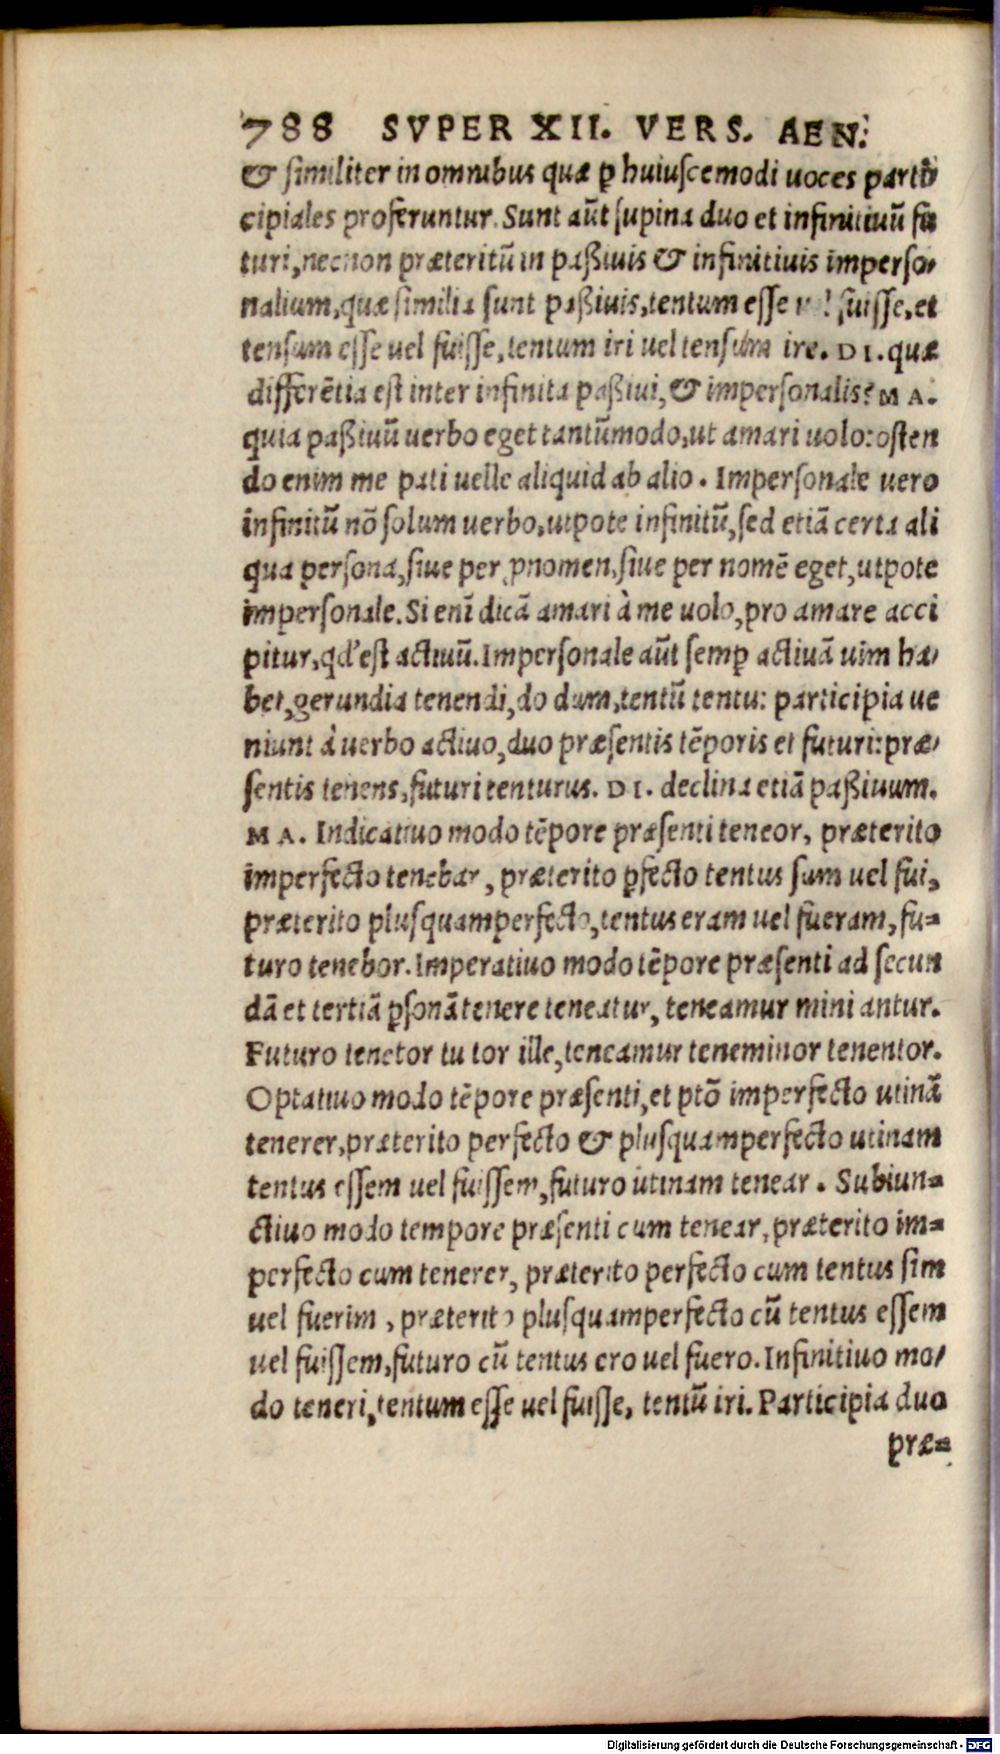 788 SVPER XII. VERS. AEN.
& similiter in omnibus quæ ꝑ huiuscemodi uoces parti
cipiales proferuntur. Sunt aūt supina duo et infinitiuū fu
turi, necnon præteritū in paßiuis & infinitiuis imperso-
nalium, quæ similia sunt paßiuis, tentum esse fuisse, et
tensum esse uel fuisse, tentum iri uel tensum ire. DI. quæ
differētia est inter infinita paßiui, & impersonalis? MA.
quia paßiuū uerbo eget tantūmodo, ut amari uolo: osten
do enim me pati uelle aliquid ab alio. Impersonale uero
infinitū nō solum uerbo, utpote infinitū, sed etiā certa ali
qua persona, siue per ꝓnomen, siue per nomē eget, utpote
impersonale. Si enī dicā amari à me uolo, pro amare acci
pitur, qd' est actiuū. Impersonale aūt semꝑ actiuā uim ha-
bet, gerundia tenendi, do dum, tentū tentu: participia ue
niunt à uerbo actiuo, duo præsentis tēporis et futuri: præ-
sentis tenens, futuri tenturus. DI. declina etiā paßiuum.
MA. Indicatiuo modo tēpore præsenti teneor, præterito
imperfecto tenebar, præterito ꝑfecto tentus sum uel fui,
præterito plusquamperfecto, tentus eram uel fueram, fu=
turo tenebor. Imperatiuo modo tēpore præsenti ad secun
dā et tertiā ꝑsonā tenere teneatur, teneamur mini antur.
Futuro tenetor tu tor ille, teneamur teneminor tenentor.
Optatiuo modo tēpore præsenti, et ptō imperfecto utinā
tenerer, præterito perfecto & plusquamperfecto utinam
tentus essem uel fuissem, futuro utinam tenear. Subiun=
ctiuo modo tempore præsenti cum tenear, præterito im=
perfecto cum tenerer, præterito perfecto cum tentus sim
uel fuerim, præterito plusquamperfecto cū tentus essem
uel fuissem, futuro cū tentus ero uel fuero. Infinitiuo mo-
do teneri, tentum esse uel fuisse, tentū iri. Participia duo
præ=
Digitalisierung gefördert durch die Deutsche Forschungsgemeinschaft - DFG